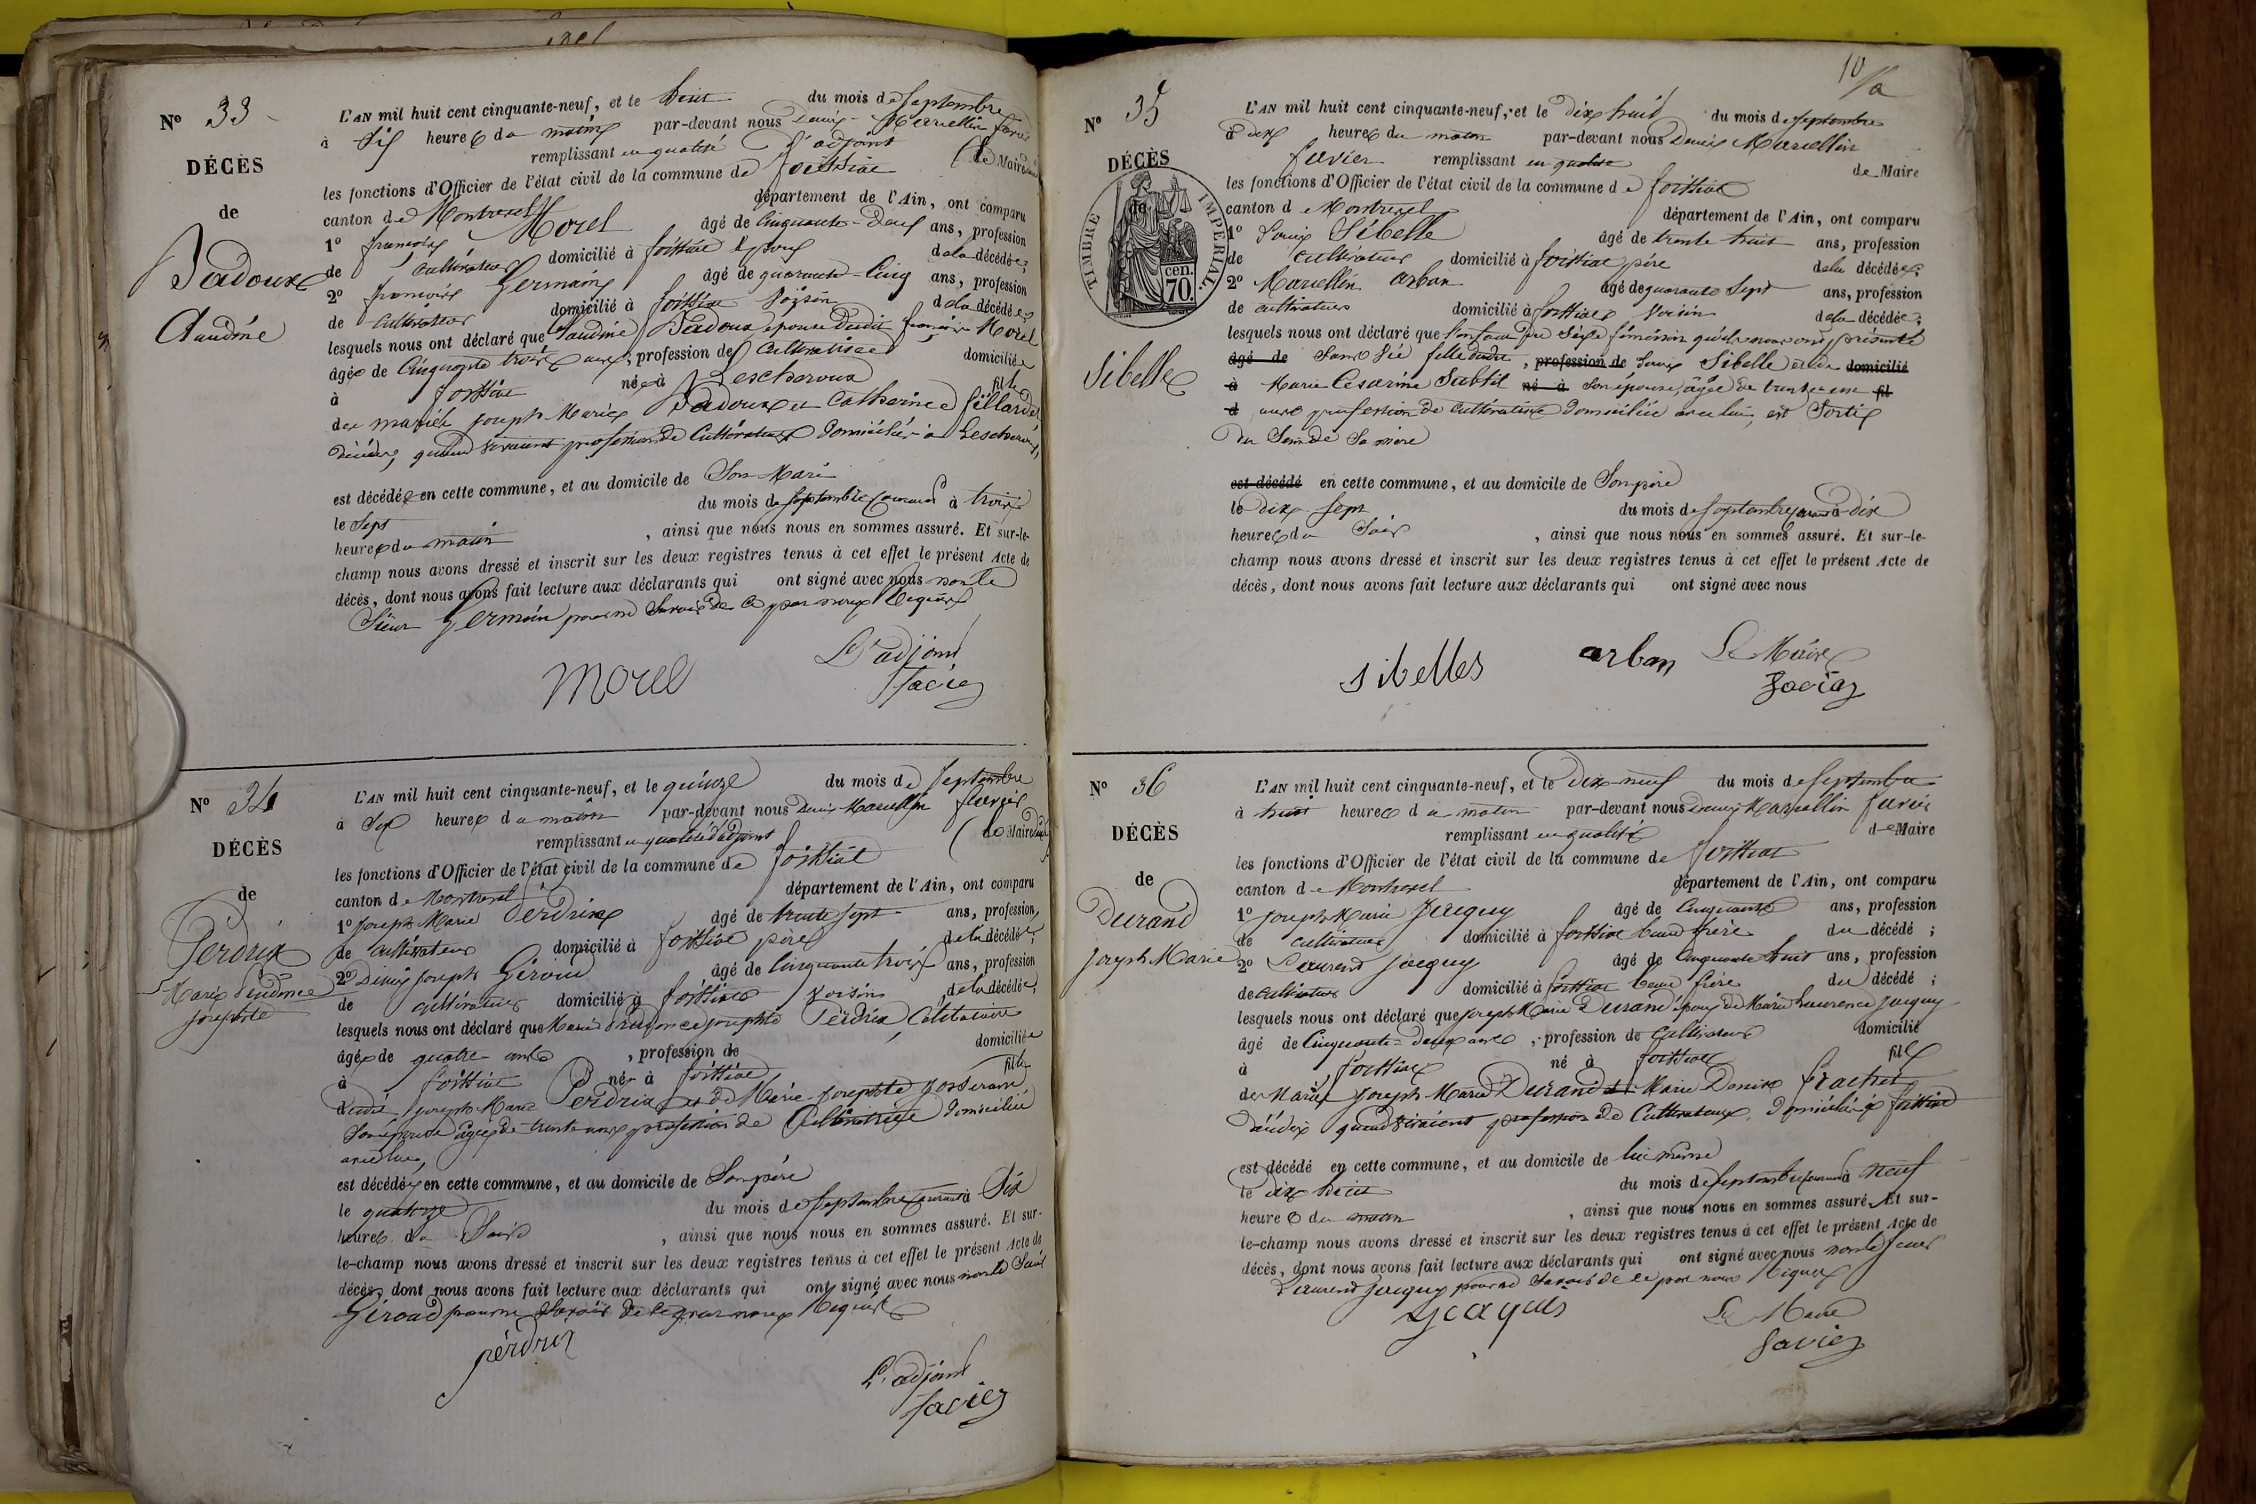 N° 33
DÉCÈS
de
Badoux
Claudine
L'AN mil huit cent cinquante-neuf, et le huit du mois de Septembre
à Six heures du matin par-devant nous Denis Marcellin favier
remplissant en qualité d'adjoint (le Maire
les fonctions d'Officier de l'état civil de la commune de foissiat
canton de Montrevel département de l'Ain, ont comparu
1° françois Morel âgé de Cinquante-Deux ans, profession
de cultivateur domicilié à foissiat Epoux de la décédée;
2° françois Germain âgé de quarante-Cinq ans, profession
de Cultivateur domicilié à foissiat Voisin de la décédée
lesquels nous ont déclaré que Claudine Badoux epouse dudit françois Morel
âgée de Cinquante trois ans, profession de Cultivatrice domiciliée
à foissiat née à Lescheroux fille
des mariés joseph-Marie Badoux et Catherine fillardet
décédés, quand vivaient profession de Cultivateurs domiciliés à Lescheroux,
est décédée en cette commune, et au domicile de Son Mari
le Sept du mois de Septembre courant à trois
heures du matin, ainsi que nous nous en sommes assuré. Et sur-le-
champ nous avons dressé et inscrit sur les deux registres tenus à cet effet le présent Acte de
décès, dont nous avons fait lecture aux déclarants qui ont signé avec nous non le
Sieur Germain pour ne Savoir de ce par nous Requis
Morel
L'adjoint
favier
N° 34
DÉCÈS
de
Perdrix
Marie
josephte
L'AN mil huit cent cinquante-neuf, et le quinze du mois de Septembre
à Six heures du matin par-devant nous Denis Marcellin favier
remplissant en qualité d'adjoint (le Maire
les fonctions d'Officier de l'état civil de la commune de foissiat
canton de Montrevel département de l'Ain, ont comparu
1° joseph Marie Perdrix âgé de trente sept ans, profession
de cultivateur domicilié à foissiat père de la décédée;
2° Denis joseph Giroud âgé de Cinquante trois ans, profession
de cultivateur domicilié à foissiat voisin de la décédée;
lesquels nous ont déclaré que Marie josephte Perdrix, Célibataire
âgée de quatre ans, profession de domiciliée
à foissiat née à foissiat fille
dudit joseph Marie Perdrix et de Marie josephte josserand
Son épouse âgée de trente ans profession de Cultivatrice domiciliée
avec lui,
est décédée en cette commune, et au domicile de Son père
le quatorze du mois de Septembre courant à Six
heures du Soir, ainsi que nous nous en sommes assuré. Et sur-
le-champ nous avons dressé et inscrit sur les deux registres tenus à cet effet le présent Acte de
décès, dont nous avons fait lecture aux déclarants qui ont signé avec nous non le Sieur
Giroud pour ne Savoir de ce par nous Requis
perdrix
L'adjoint
favier
10
N° 35
DÉCÈS
de
TIMBRE IMPÉRIAL.
cen.
70.
Sibelle
L'AN mil huit cent cinquante-neuf, et le dix huit du mois de Septembre
à dix heures du matin par-devant nous Denis Marcellin
favier remplissant en qualité de Maire
les fonctions d'Officier de l'état civil de la commune de foissiat
canton de Montrevel département de l'Ain, ont comparu
1° Louis Sibelle âgé de trente huit ans, profession
de cultivateur domicilié à foissiat père de la décédée;
2° Marcellin arban âgé de quarante Sept ans, profession
de cultivateur domicilié à foissiat Voisin de la décédée;
lesquels nous ont déclaré que l'enfant du Sexe féminin qu'ils nous ont présenté
âgé de Sans vie fille dudit, profession de Louis Sibelle et de domicilié
à Marie Cesarine Subtil né à Son épouse, âgée de trente un fil
d ans profession de cultivatrice domiciliée avec lui, est Sortie
du Sein de Sa mère
est décédé en cette commune, et au domicile de Son père
le dix Sept du mois de Septembre courant à dix
heures du Soir, ainsi que nous nous en sommes assuré. Et sur-le-
champ nous avons dressé et inscrit sur les deux registres tenus à cet effet le présent Acte de
décès, dont nous avons fait lecture aux déclarants qui ont signé avec nous
sibelles
arban
Le Maire
favier
N° 36
DÉCÈS
de
Durand
joseph Marie
L'AN mil huit cent cinquante-neuf, et le Dix-neuf du mois de Septembre
à huit heures du matin par-devant nous Denis Marcellin favier
remplissant en qualité de Maire
les fonctions d'Officier de l'état civil de la commune de foissiat
canton de Montrevel département de l'Ain, ont comparu
1° joseph Marie Jacquy âgé de Cinquante ans, profession
de cultivateur domicilié à foissiat beau frère du décédé;
2° Laurent jacquy âgé de Cinquante huit ans, profession
de cultivateur domicilié à foissiat beau frère du décédé;
lesquels nous ont déclaré que joseph Marie Durand époux de Marie Laurence Jacquy
âgé de Cinquante-Deux ans, profession de cultivateur domicilié
à foissiat né à foissiat fils
des Mariés joseph-Marie Durand et Marie Denise
décédés quand vivaient profession de Cultivateurs, domiciliés à foissiat
est décédé en cette commune, et au domicile de lui même
le dix huit du mois de Septembre courant à neuf
heures du matin, ainsi que nous nous en sommes assuré. Et sur-
le-champ nous avons dressé et inscrit sur les deux registres tenus à cet effet le présent Acte de
décès, dont nous avons fait lecture aux déclarants qui ont signé avec nous non le Sieur
Laurent Jacquy pour ne Savoir de ce par nous Requis
Le Maire
favier